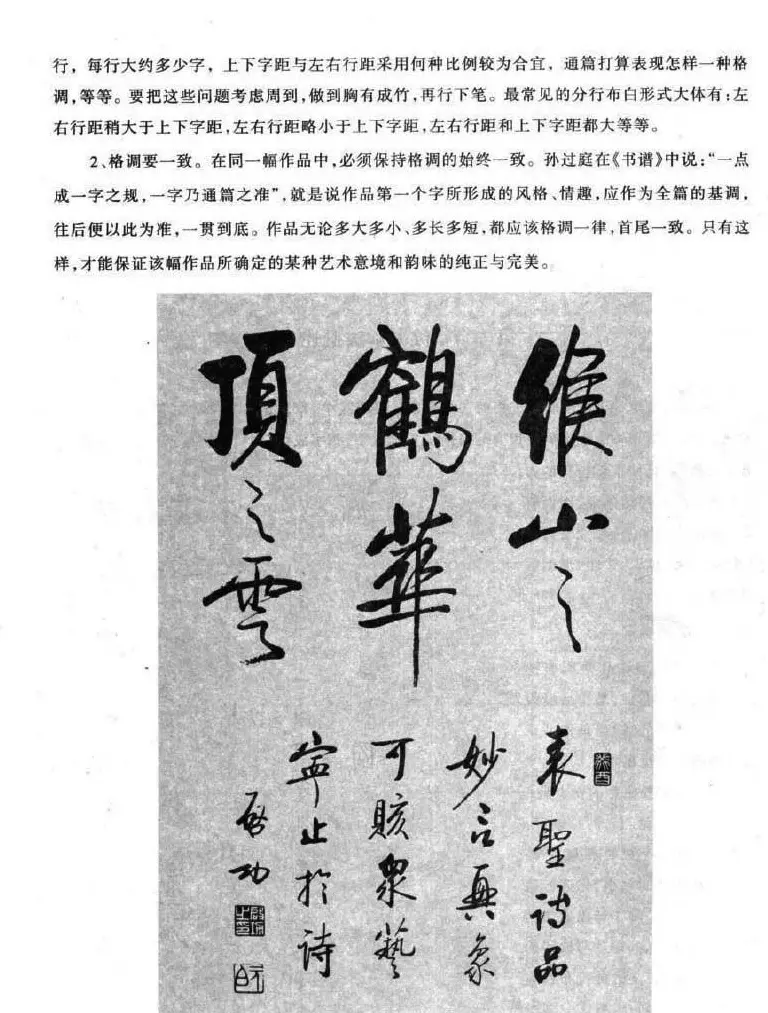 行，每行大约多少字，上下字距与左右行距采用何种比例较为合宜，通篇打算表现怎样一种格
调，等等。要把这些问题考虑周到，做到胸有成竹，再行下笔。最常见的分行布白形式大体有：左
右行距稍大于上下字距，左右行距略小于上下字距，左右行距和上下字距都大等等。
2、格调要一致。在同一幅作品中，必须保持格调的始终一致。孙过庭在《书谱》中说：“一点
成一字之规，一字乃通篇之准”，就是说作品第一个字所形成的风格、情趣，应作为全篇的基调，
往后便以此为准，一贯到底。作品无论多大多小、多长多短，都应该格调一律，首尾一致。只有这
样，才能保证该幅作品所确定的某种艺术意境和韵味的纯正与完美。
缑山之
鶴華
頂之雲
表聖詩品
妙言興象
可賅衆藝
寧止於詩
啓功